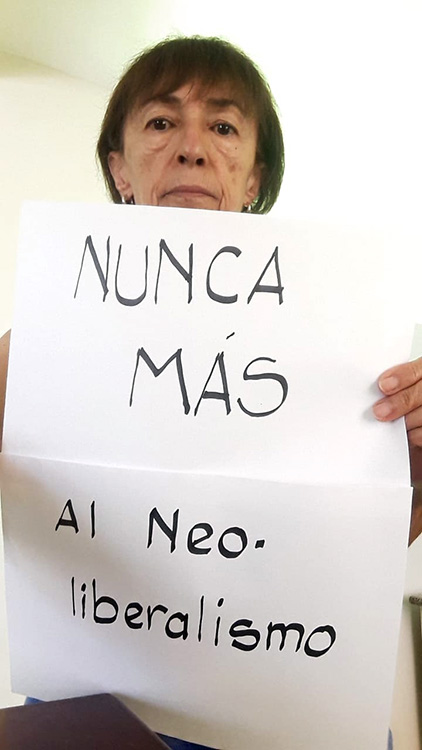 NUNCA
MÁS
Al Neo-
liberalismo